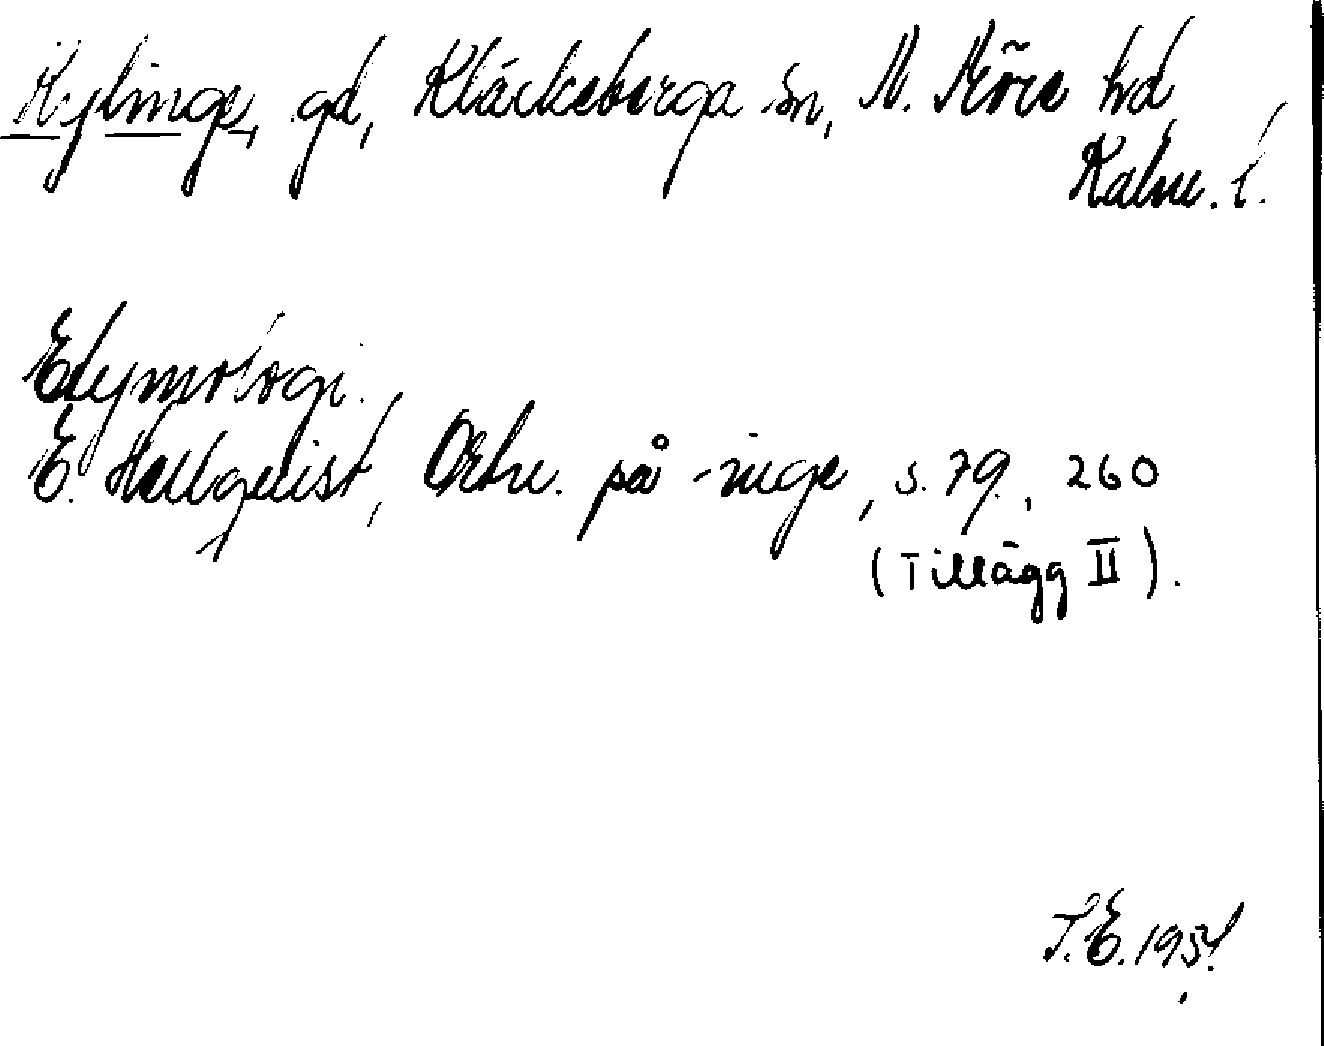 Kylinge, gd, Kläckeberga sn, N. Möre hd
Kalm. l.
Etymologi.
E. Hellquist, Ortn. på -inge, s. 79, 260
(Tillägg II).
T.E.